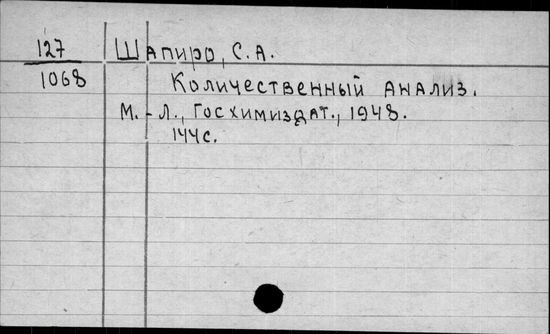 127 Шапиро, С.А.
1068 Количественный анализ.
М.-Л., Госхимиздат., 1948.
144с.